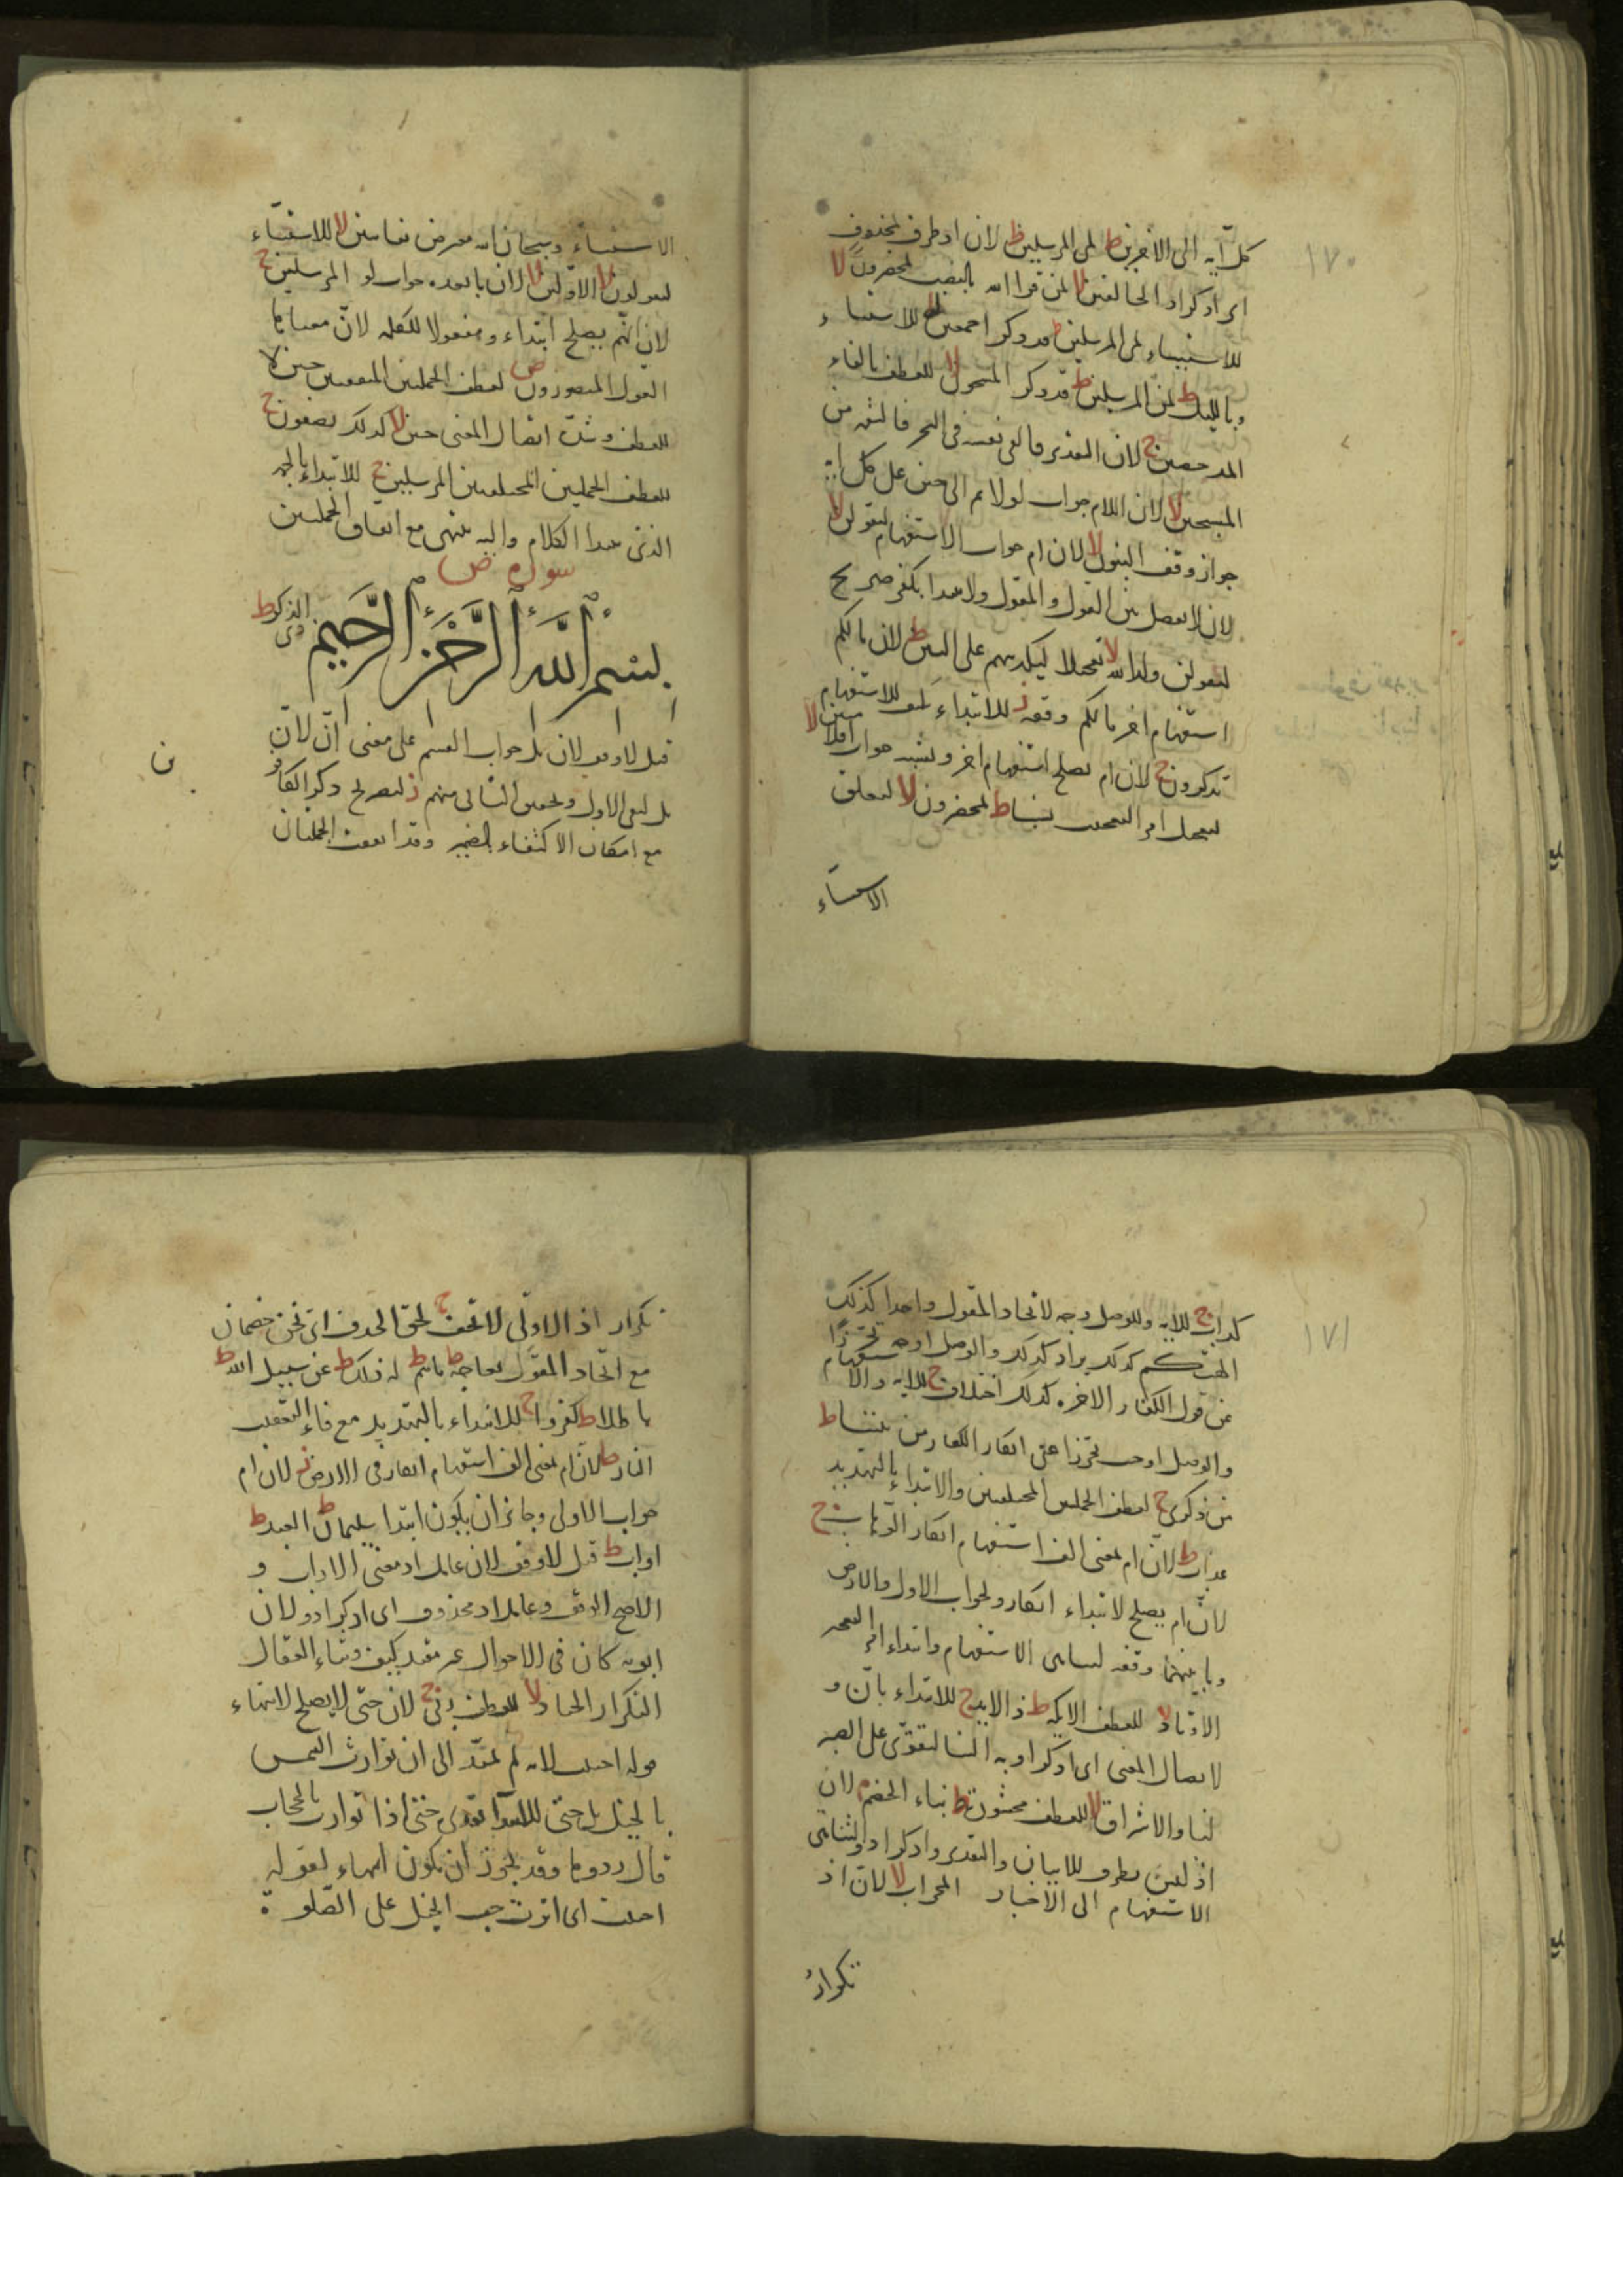 ١٧٠
كل آية الى الآخرين ط لمن المرسلين ط لان اذ ظرف لمحذوف
اى اذكر اذ الخالقين لا لمن قرا الله بالنصب لمحضرون لا
للاستثناء لمن المرسلين ط قد ذكر اجمعين لا للاستثناء
وبالليل ط لمن المرسلين ط قد ذكر المشحون لا للعطف بالفاء
المدحضين ج لان التقدير فالقى نفسه فى البحر فالتقمه من
المسبحين لا لان اللام جواب لولا ثم الى حين على كل آية
جواز وقف البنون لا لان ام جواب الاستفهام ليقولن لا
لان لا يفصل بين القول والمقول ولا يبدا بكفر صريح
ليقولن ولد الله لا تعجيلا لتكذيبهم على البنين ط لان ما لكم
استفهام اخر ما لكم وقفة ز للابتداء بكيف للاستفهام
تذكرون ج لان ام تصلح استفهام اخر وتشبه جواب افلا مبين لا
لتعجيل امر التعجيب نسبا ط لمحضرون لا لتعلق
الاستثناء
الاستثناء وسبحان الله معترض بفاتنين لا للاستثناء
ليقولون لا الاولين لا لان ما بعده جواب لو المرسلين ج
لان انهم يصلح ابتداء ومفعولا للكلمة لان معناها
القول المنصورون ص لعطف الجملتين المتفقتين حين لا
للعطف وشدة اتصال المعنى حين لا كذلك يصفون ج
للعطف الجملتين المختلفتين المرسلين ج للابتداء بالحمد
الذى يبدا الكلام واليه ينتهى مع اتفاق الجملتين
سورة ص
بسم الله الرحمن الرحيم ذى الذكر ط
قيل لا وقف لان بل جواب القسم على معنى ان لان
بل لنفى الاول وتحقيق الثانى منهم ز لتصريح ذكر الكافر
مع امكان الاكتفاء بالضمير وقد اتفقت الجملتان
١٧١
كذاب ج للاية وللوصل وجه لاتحاد المقول واحدا كذلك
الهتكم كذلك يراد كذلك والوصل اوجه تحرزا
عن قول الكفار الاخرة كذلك اختلاق ج للاية والاستفهام
والوصل اوجب تحرزا عن انكار الكفار من بيننا ط
من ذكرى ج لعطف الجملتين المختلفتين والابتداء بالتهديد
عذاب ط لان ام بمعنى الف استفهام انكار الوهاب ج
لان ام يصلح لابتداء انكار ولجواب الاول والارض
وما بينهما وقفة لتناهى الاستفهام وابتداء امر التعجيز
الاوتاد لا للعطف الايكة ط ذا الايد ج للابتداء بان و
لاتصال المعنى اى اذكر اوبه الينا لتقوى على الصبر
لنا والاشراق لا للعطف محشورة ط نبأ الخصم م لان
اذ ليس بظرف للاتيان والتقدير واذكر اذ والثانى
الاستفهام الى الاخبار المحراب لا لان اذ
تكرار
تكرار اذ الاولى لا تخف ج لحق الحذف اى نحن خصمان
مع اتحاد المقول نعاجه ط ما هم ط له ذلك ط عن سبيل الله ط
باطلا ط كفروا ج للابتداء بالتهديد مع فاء التعقيب
النار ط لان ام بمعنى الف استفهام انكار فى الارض ز لان ام
جواب الاولى وجائز ان يكون ابتدا سليمان ط العبد ط
اواب ط قيل لا وقف لان عامل اذ معنى الاواب و
الاصح الوقف وعامل اذ محذوف اى اذكر اذ ولان
اوبه كان فى الاحوال غير مقيد بكيف وثناء العقال
التكرار الجياد لا للعطف ربى ج لان حتى لا يصلح لانتهاء
قوله احببت لانه لم يمتد الى ان توارت الشمس
بالخيل بل حتى للابتداء تقديره حتى اذا توارت بالحجاب
قال ردوها وقد يجوز ان يكون انتهاء لقوله
احببت اى اثرت حب الخيل على الصلوة